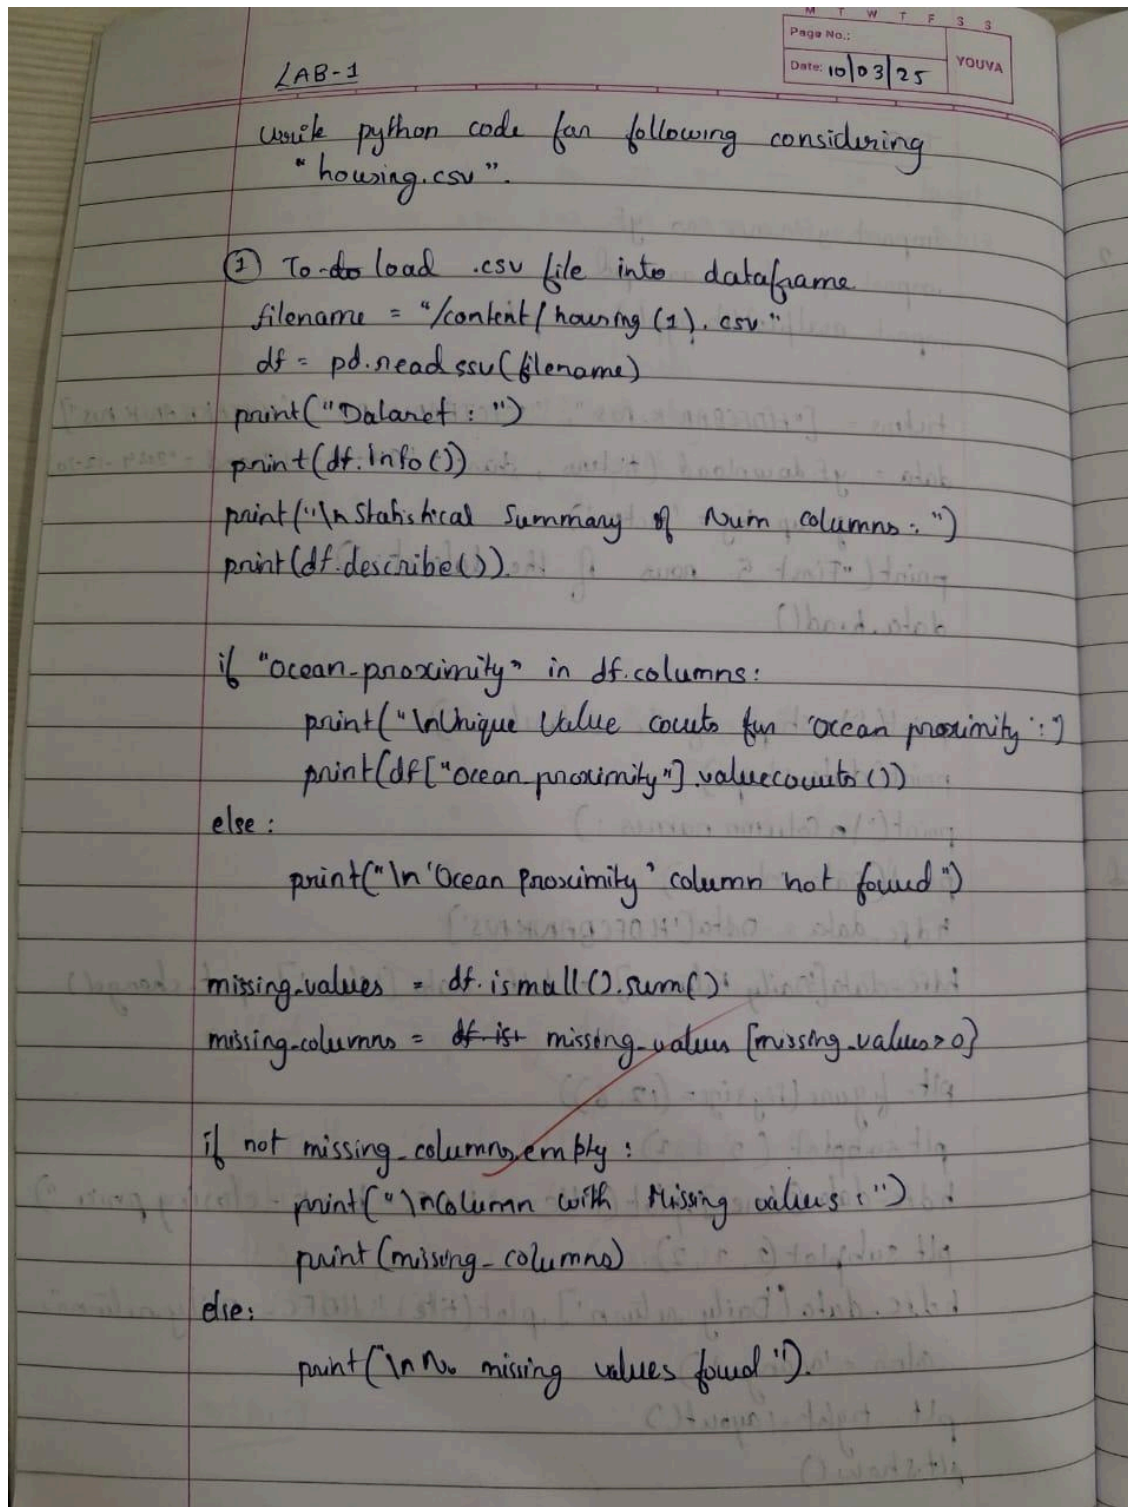 M T W T F S S
Page No.:
Date: 10/03/25
YOUVA
LAB-1
Write python code for following considering
"housing.csv".
① To do load .csv file into dataframe
filename = "/content/housing (1). csv"
df = pd.read ssv(filename)
print("Dalaret : ")
print(df.info())
print("\n Statistical Summary of Num columns : ")
print(df.describe()).
if "ocean-proximity" in df.columns:
print("\nUnique Value couts for 'ocean proximity' :")
print(df["ocean proximity"].valuecounts())
else :
print("\n 'Ocean Proximity' column not found")
missing-values = df.isnull().sum()
missing-columns = df ist missing-values [missing-values>0]
if not missing-columns.empty :
print("\nColumn with Missing values :")
print(missing- columns)
else:
print("\n No missing values found").